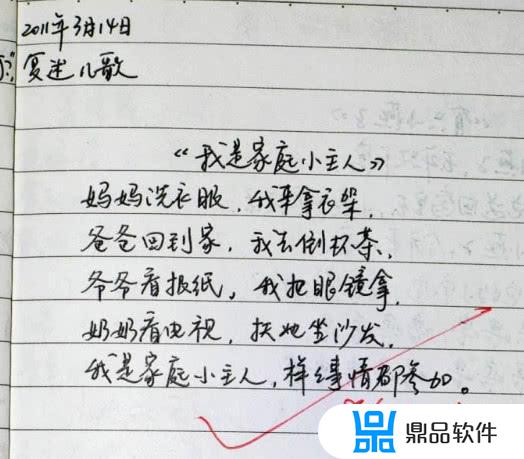 2011年3月14日
复述儿歌
《我是家庭小主人》
妈妈洗衣服，我来拿衣架，
爸爸回到家，我去倒杯茶，
爷爷看报纸，我把眼镜拿，
奶奶看电视，扶她坐沙发，
我是家庭小主人，样样事情都参加。
鼎品软件